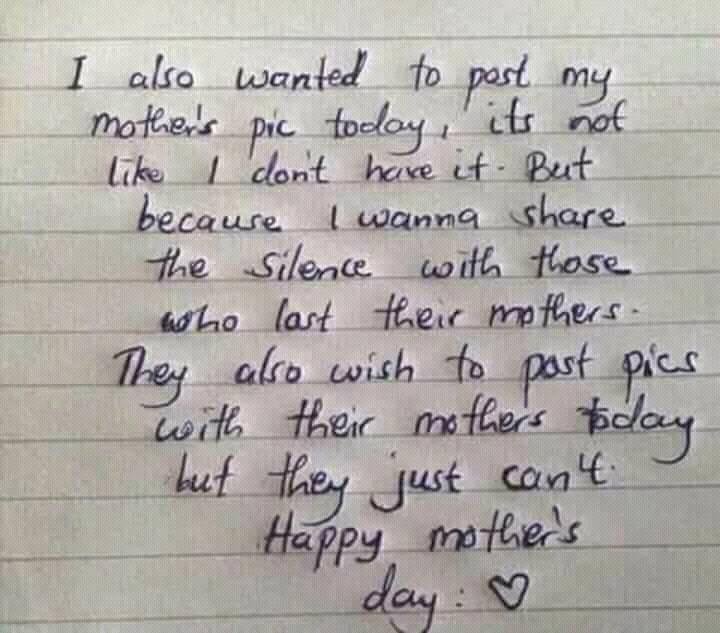 I also wanted to post my
mother's pic today, its not
like I don't have it. But
because I wanna share
the silence with those
who lost their mothers.
They also wish to post pics
with their mothers today
but they just can't.
Happy mother's
day : ♡